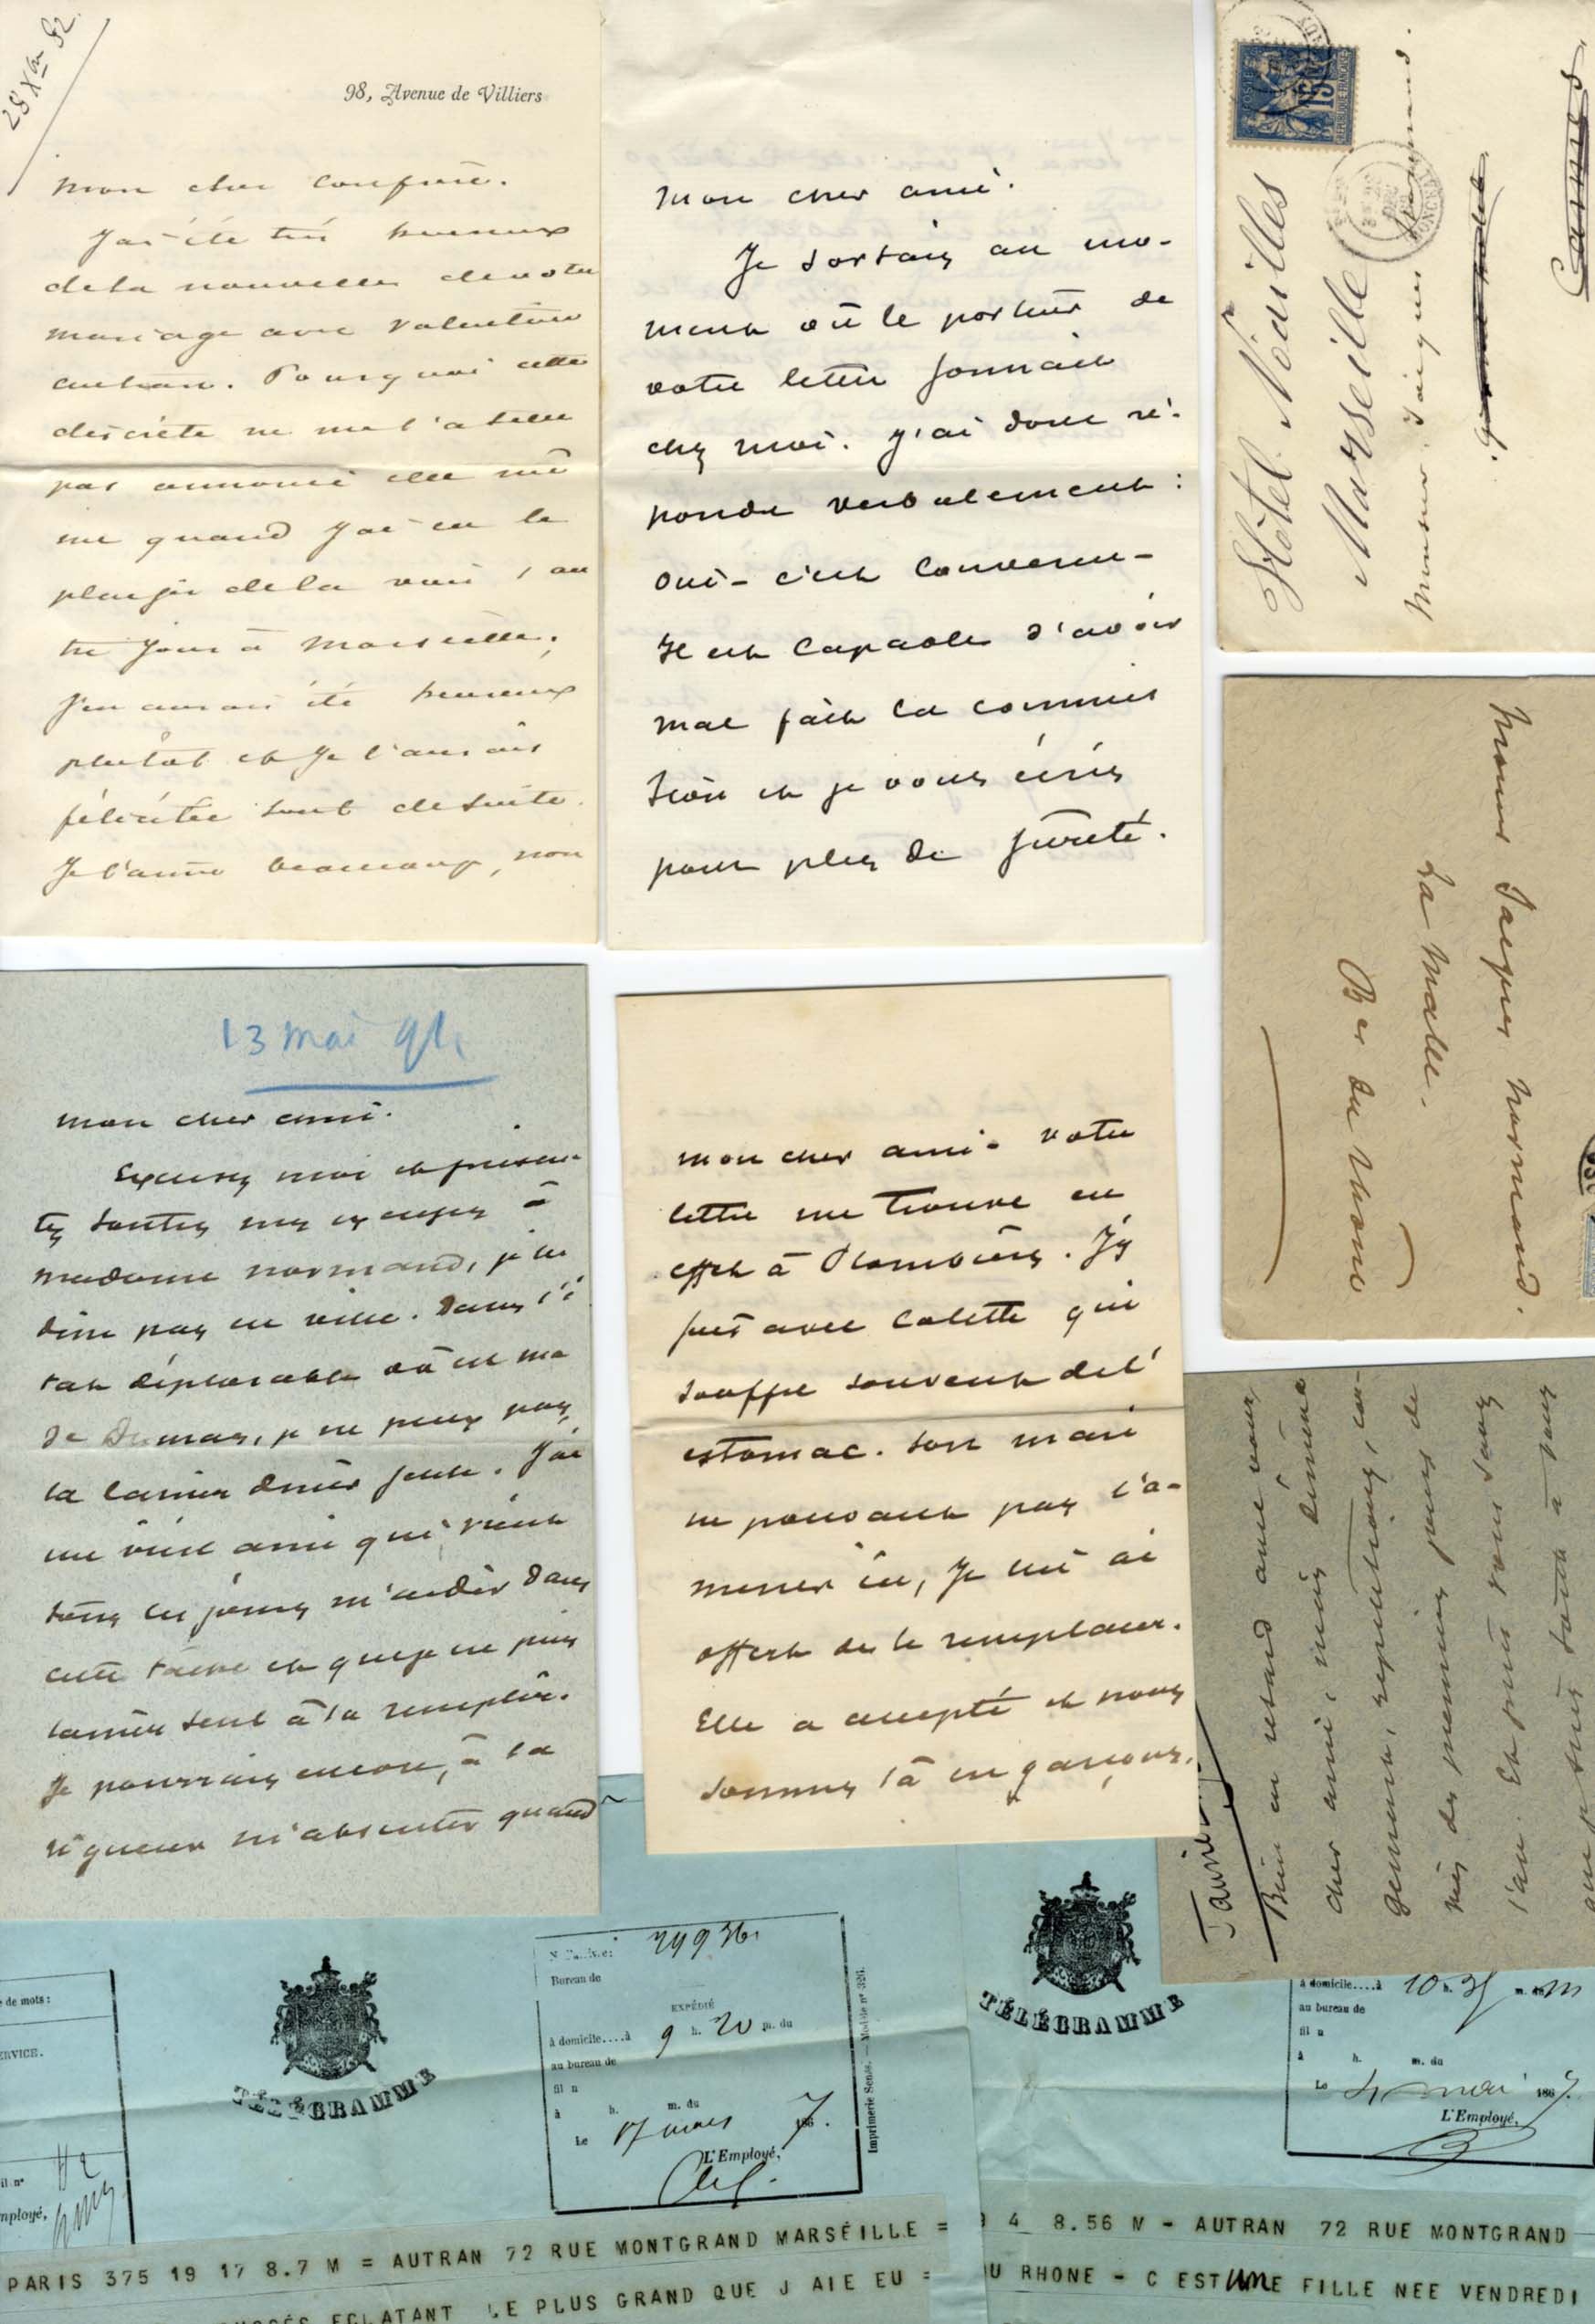 28 Xbre 82
98, Avenue de Villiers
mon cher confrère.
J'ai été très heureux
de la nouvelle de votre
mariage avec Valentine
autran. Pourquoi cette
discrète ne me l'a telle
pas annoncé elle mê
me quand j'ai eu le
plaisir de la voir, l'au
tre jour à Marseille;
j'en aurais été heureux
plutôt et je l'aurais
félicitée tout de suite.
Je l'aime beaucoup, non
mon cher ami.
Je sortais au mo-
ment où le porteur de
votre lettre sonnait
chez moi. J'ai donc ré-
pondu verbalement:
oui - c'est convenu -
Il est capable d'avoir
mal fait la commis
sion et je vous écris
pour plus de sûreté.
POSTES
15
REPUBLIQUE FRANÇAISE
Hôtel Noailles
Marseille
Monsieur Jacques Normand.
Cannes
Monsieur Jacques Normand.
La Malle.
Bes du Rhône
13 mai 91
mon cher ami.
Excusez moi et présen-
tez toutes mes excuses à
madame normand, je ne
dine pas en ville. Dans l'é
tat déplorable où est me
de Dumas, je ne peux pas
la laisser diner seule. J'ai
un vieil ami qui vient
tous les jours m'aider dans
cette tâche et que je ne puis
laisser seul à la remplir.
Je pourrais encore, à la
rigueur m'absenter quand
mon cher ami - votre
lettre me trouve en
effet à Plombières. J'y
suis avec Colette qui
souffre souvent de l'
estomac. Son mari
ne pouvant pas l'a-
mener ici, je lui ai
offert de le remplacer.
Elle a accepté et nous
sommes là en garçons,
Janvier
Bien en retard avec vous
cher ami, mais déména
gement, répétitions, en-
nuis des premiers jours de
l'an. Et puis vous savez
que je suis tout à vous
de mots :
SERVICE.
Employé,
TÉLÉGRAMME
24936
Bureau de
EXPÉDIÉ
à domicile....à 9 h. 20 m. du
au bureau de
fil n
à h. m. du
Le 17 mars 1867.
L'Employé,
Imprimerie Senés. — Modèle n° 326.
TÉLÉGRAMME
à domicile....à 10 h. 35 m. du m
au bureau de
fil n
à h. m. du
Le 4 mai 1867.
L'Employé,
PARIS 375 19 17 8.7 M = AUTRAN 72 RUE MONTGRAND MARSEILLE =
ECLATANT LE PLUS GRAND QUE J AIE EU =
4 8.56 M - AUTRAN 72 RUE MONTGRAND
DU RHONE - C EST UNE FILLE NEE VENDREDI